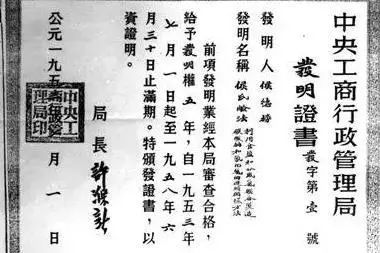 中央工商行政管理局
發明證書
發字第壹號
發明人 侯德榜
發明名稱 侯氏碱法
前項發明業經本局審查合格，
給予發明權五年，自一九五三年
七月一日起至一九五八年六
月三十日止滿期。特頒發證書，以
資證明。
局長 許滌新
公元一九五
月一日
中央工商行政管理局印